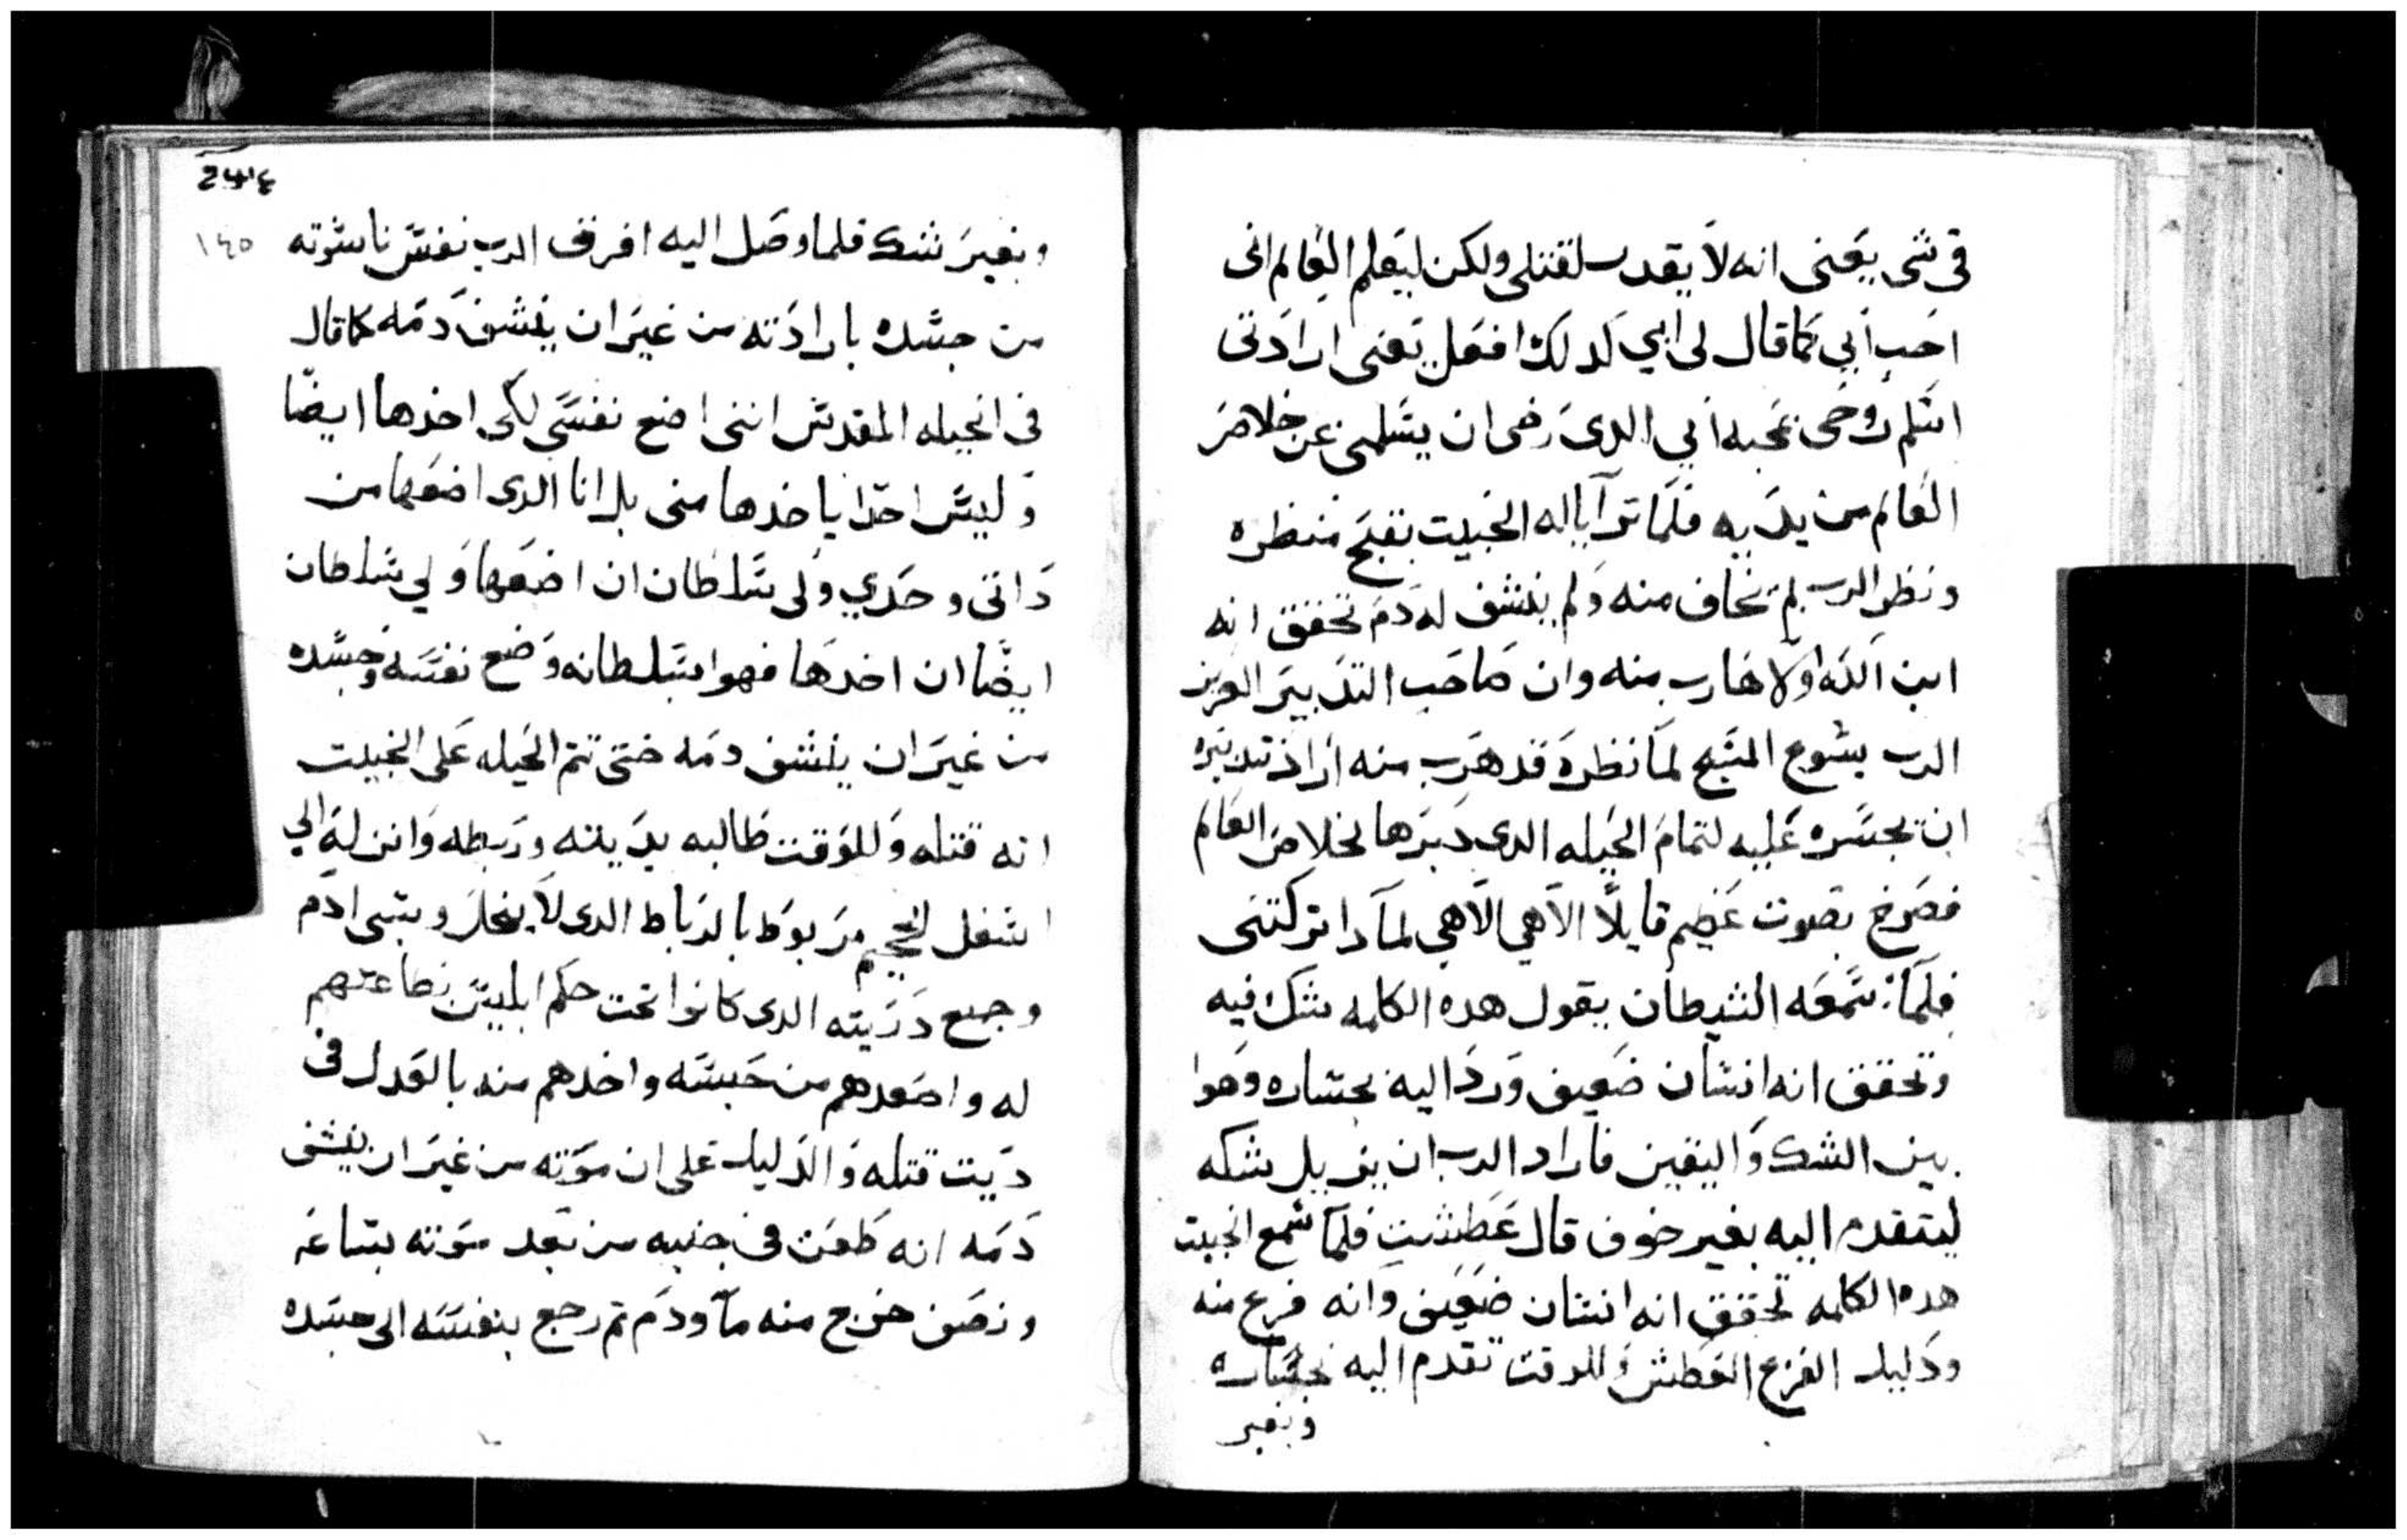 في شى يعنى انه لا يقدر لقتلى ولكن ليعلم العالم انى
احب ابي كما قال لى ابي كدلك افعل يعنى ارادتى
اسلم روحى بمحبه ابي الدى رضى ان يسلمنى عن خلاص
العالم من يديه فلما ترآيا له الخبيت بقبح منظره
ونظر الرب لم يخاف منه ولم ينشف له دم تحقق انه
ابن الله اولا هارب منه وان صاحب التدبير العزيز
الرب يسوع المسيح لما نظره قد هرب منه اراد تدبيره
ان يجسره عليه لتمام الحيله الدى دبرها لخلاص العالم
فصرخ بصوت عظيم قايلاً الاهي الاهي لمادا تركتنى
فلما سمعه الشيطان يقول هده الكلمه شك فيه
وتحقق انه انسان ضعيف ورد اليه بجساره وهوا
بين الشك واليقين فاراد الرب ان يزيل شكه
ليتقدم اليه بغير خوف قال عطشت فلما سمع الخبيت
هده الكلمه تحقق انه انسان ضعيف وانه فزع منه
ودليل الفزع العطش وللوقت تقدم اليه بجساره
وبغير
١٤٥
وبغير شك فلما وصل اليه افرق الرب نفس ناسوته
من جسده بارادته من غير ان ينشف دمه كما قال
في انجيله المقدس اننى اضع نفسي لكى اخدها ايضا
وليس احدا ياخدها منى بل انا الدى اضعها من
داتى وحدي ولى سلطان ان اضعها ولي سلطان
ايضا ان اخدها فهوا بسلطانه وضع نفسه وجسده
من غير ان ينشف دمه حتى تتم الحيله على الخبيت
انه قتله وللوقت طالبه بديته وربطه وانزله الي
اسفل الجحيم مربوط بالرباط الدى لا ينحل وسبى ادم
وجميع دريته الدى كانوا تحت حكم ابليس بطاعتهم
له واصعدهم من حبسه واخدهم منه بالعدل في
ديت قتله والدليل على ان موته من غير ان ينشف
دمه انه طعن في جنبه من بعد موته بساعه
ونصف خرج منه مآ ودم تم رجع بنفسه الى جسده